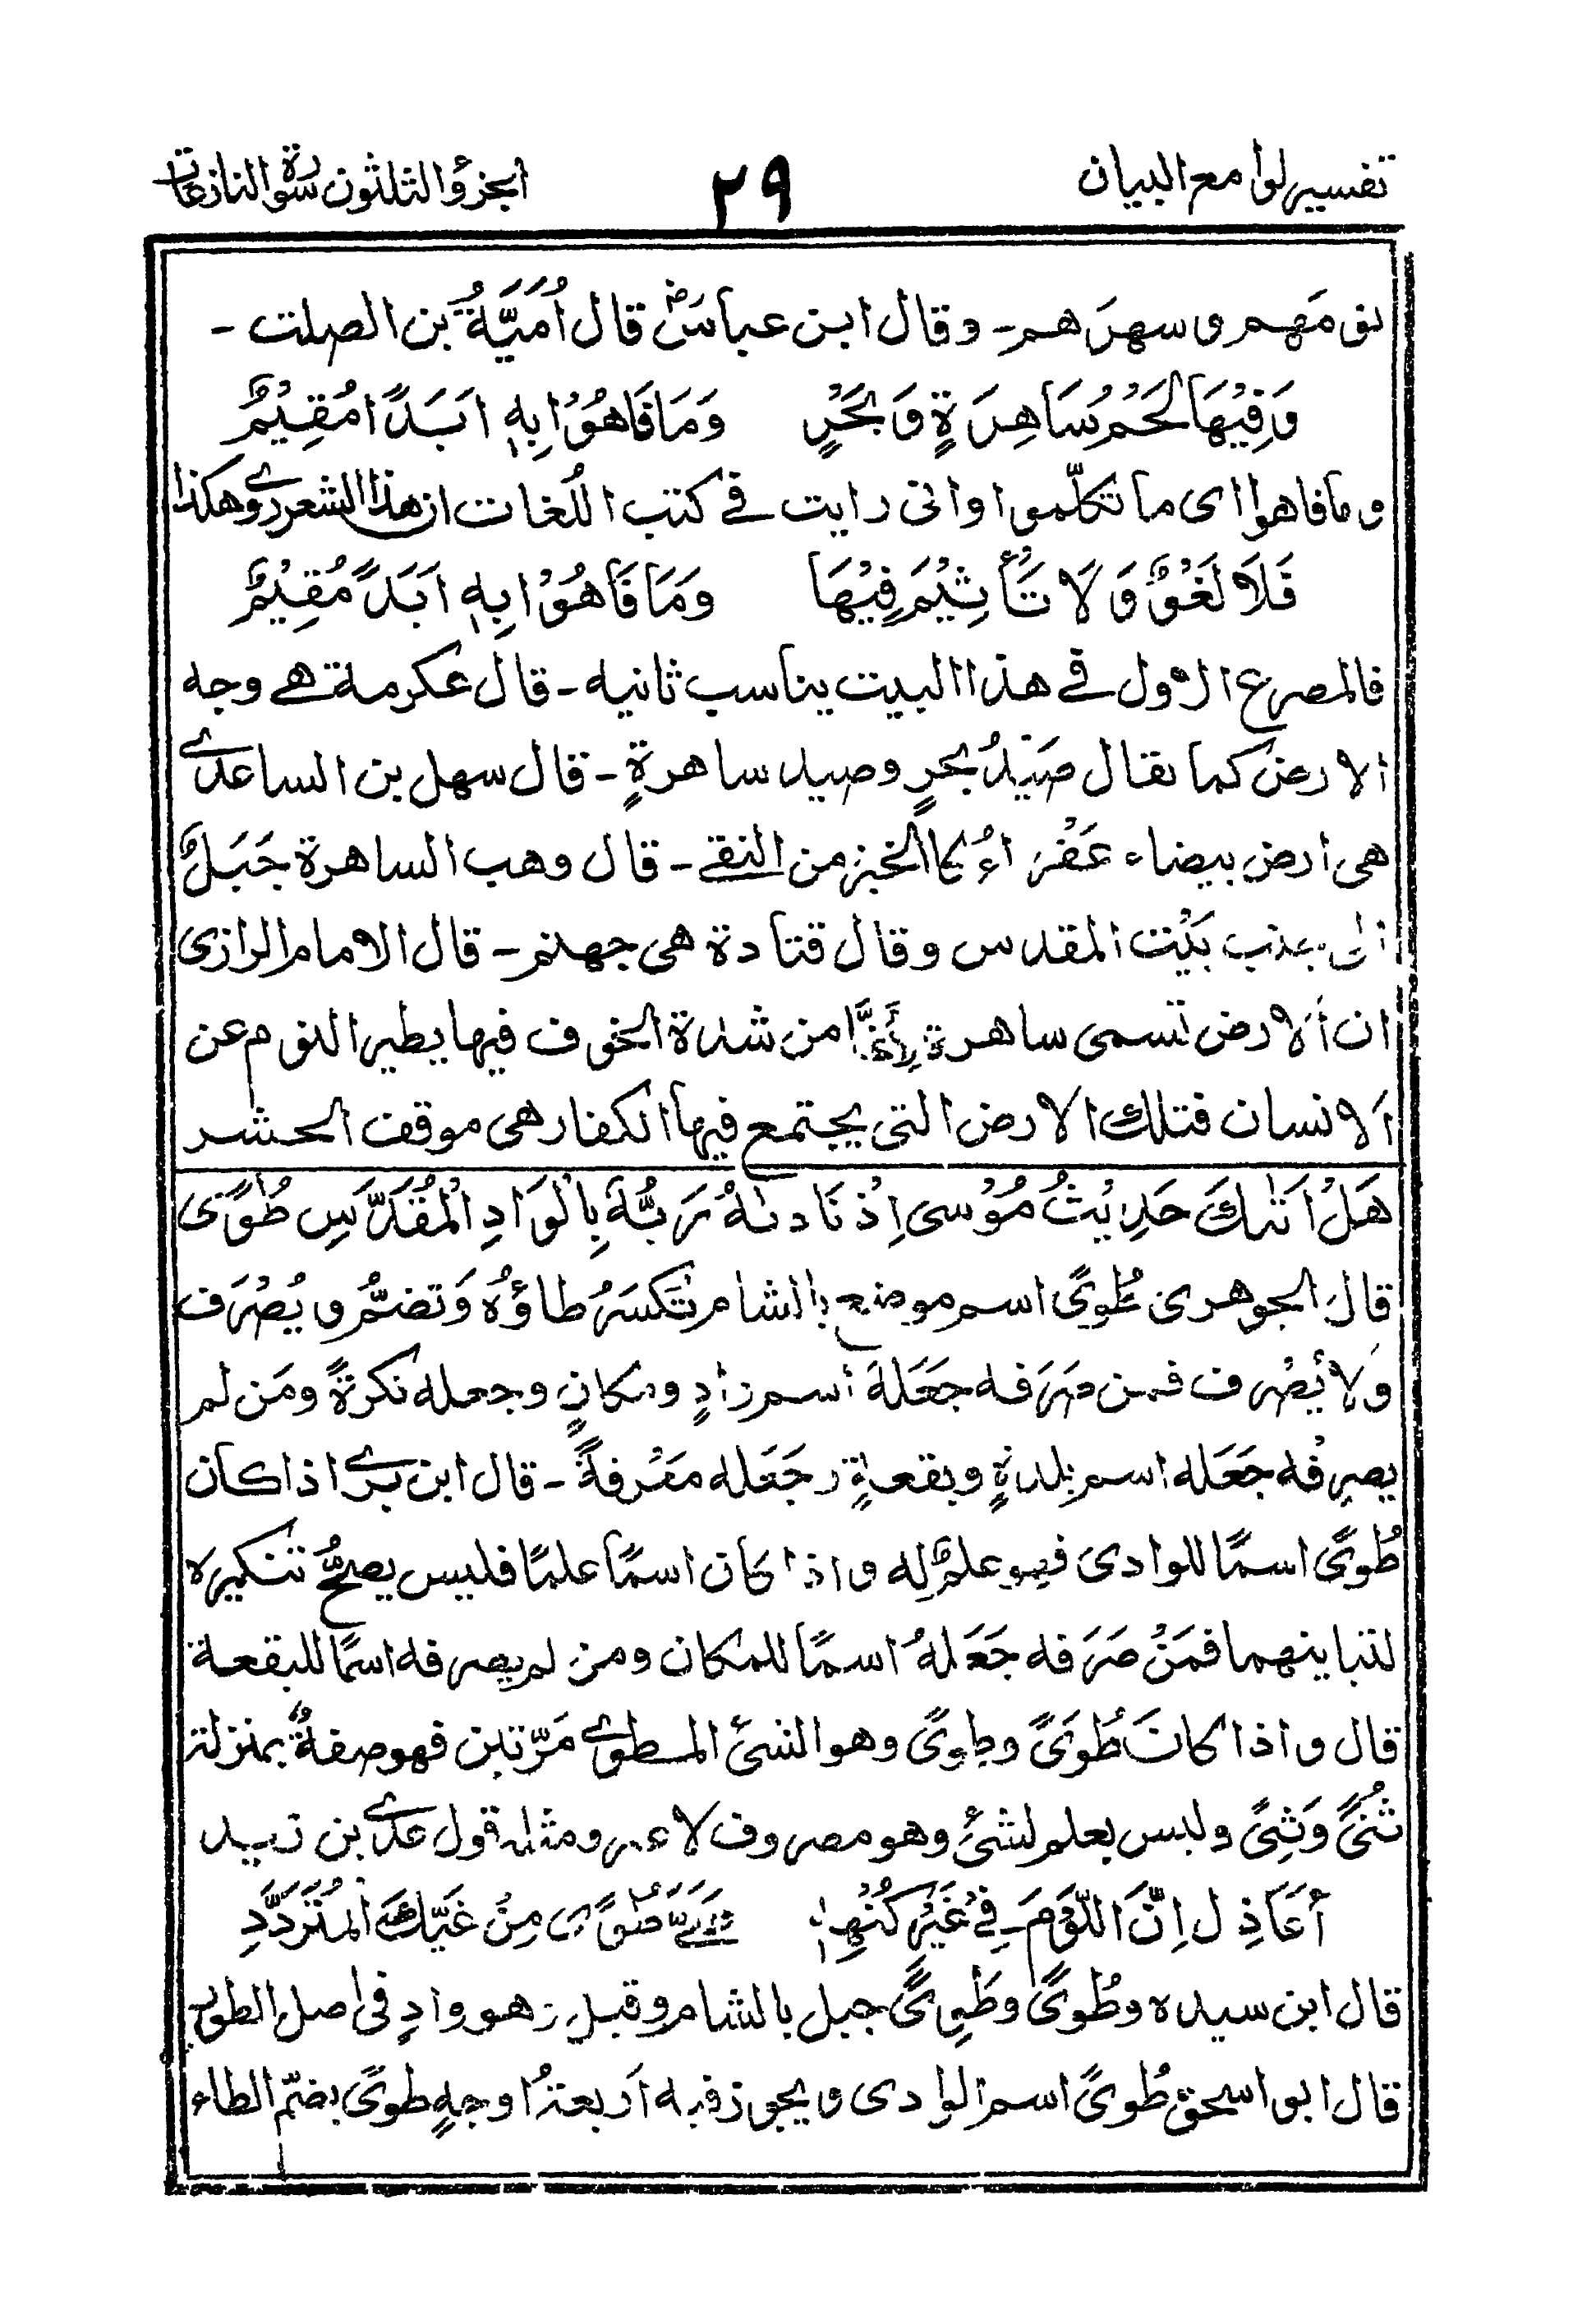 تفسير لوامع البيان
٢٩
الجزؤ الثلثون سورة والنازعات
نومهم وسهرهم - وقال ابن عباسؓ قال اُمَيَّةُ بن الصلت -
وَفِيْهَا لَحْمُ سَاهِرَةٍ وَبَحْرٍ وَمَا فَاهُوْا بِهٖ اَبَدًا مُقِيْمٌ
وما فاهوا اى ما تكلّموا وانى رايت فى كتب اللغات ان هذا الشعر روى هكذا
فَلَا لَغْوٌ وَلَا تَأْثِيْمَ فِيْهَا وَمَا فَاهُوْا بِهٖ اَبَدً مُقِيْمٌ
فالمصرع الاول فى هذا البيت يناسب ثانيه - قال عكرمة هى وجه
الارض كما يقال صَيْدُ بحرٍ وصيد ساهرةٍ - قال سهل بن الساعدى
هى ارض بيضاء عَفْراءُ كالخبز من النقى - قال وهب الساهرة جَبَلٌ
بَيْت المقدس وقال قتادة هى جهنم - قال الامام الرازى
ان الارض تسمى ساهرة لِأَنَّها من شدة الخوف فيها يطير النوم عن
الانسان فتلك الارض التى يجتمع فيها الكفار هى موقف الحشر
هَلْ اَتٰىكَ حَدِيْثُ مُوْسى اِذْ نَادٰىهُ رَبُّهٗ بِالْوَادِ الْمُقَدَّسِ طُوًى
قال الجوهرى طُوىً اسم موضع بالشام تُكسَرُ طاؤهُ وَتضمُّ ويُصْرَف
ولا يُصْرف فمن صَرَفه جَعَلَهٗ اسم وادٍ ومكانٍ وجعله نكرةً ومَن لم
يصرِفْه جَعَله اسم بلدةٍ وبقعةٍ وجَعَله مَعْرفةً - قال ابن برى اذا كان
طُوىً اسمًا للوادى فهو علمٌ له واذا كان اسمًا علمًا فليس يصحُّ تنكيره
لتباينهما فمَنْ صَرَفه جَعَلهُ اسمًا للمكان ومن لم يصرفه اسمًا للبقعة
قال واذا كانَ طُوَىً وطِوىً وهو الشئ المطوى مَرّتين فهو صفةٌ بمنزلة
ثُنىً وَثِنىً وليس بعلم لشئ وهو مصروف لا غير ومثله قول عدى بن زيد
أَعَاذِل اِنَّ اللَّوْمَ فِىْ غَيْرِ كُنْهِهٖ طُوًى مِنْ غَيِّكِ الْمُتَرَدِّدِ
قال ابن سيده وطُوىً وطِوىً جبل بالشام وقيل هو وادٍ فى اصل الطور
قال ابو اسحق طُوىً اسم الوادى ويجوز فيه اَربعةُ اوجهٍ طوىً بضمّ الطاء